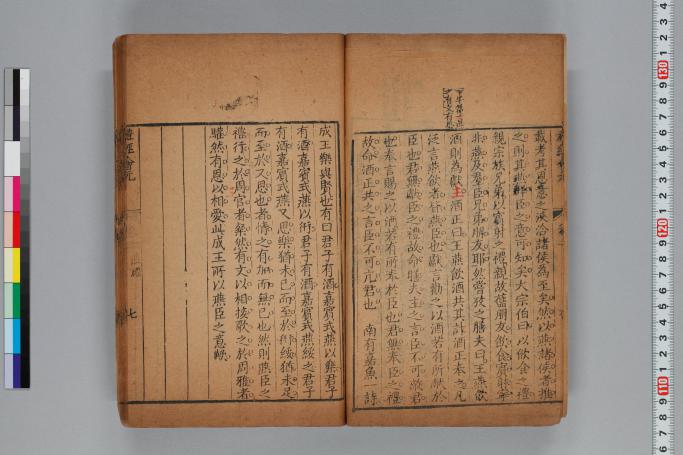 戲考其恩意之浹洽諸侯為至矣然以燕諸侯者推
之則其燕群臣之意可知矣大宗伯曰以飲食之禮
親宗族兄弟以賓射之禮親故舊朋友飲食賓射
非燕及羣臣兄弟朋友耶然嘗攷之膳夫曰王燕飲
酒則為獻主酒正曰王燕飲酒共其計酒正奉之凡
泛言燕飲者皆燕臣也獻言勸之以酒若有所獻於
臣也君無獻臣之禮故命膳夫主之言臣不可敵君
也奉言賜之以酒若有所奉於臣也君無奉臣之禮
故命酒正共之言臣不可亢君也 南有嘉魚一詩
成王樂與賢也有曰君子有酒嘉賓式燕以樂君子
有酒嘉賓式燕以衎君子有酒嘉賓式燕綏之君子
有酒嘉賓式燕又思樂猶未已而至於衎綏猶未足
而至於又思也者情之有加而無已也然則燕臣之
禮行之於周官者粲然有文以相接歌之於周雅者
驩然有恩以相愛此成王所以燕臣之意歟
七